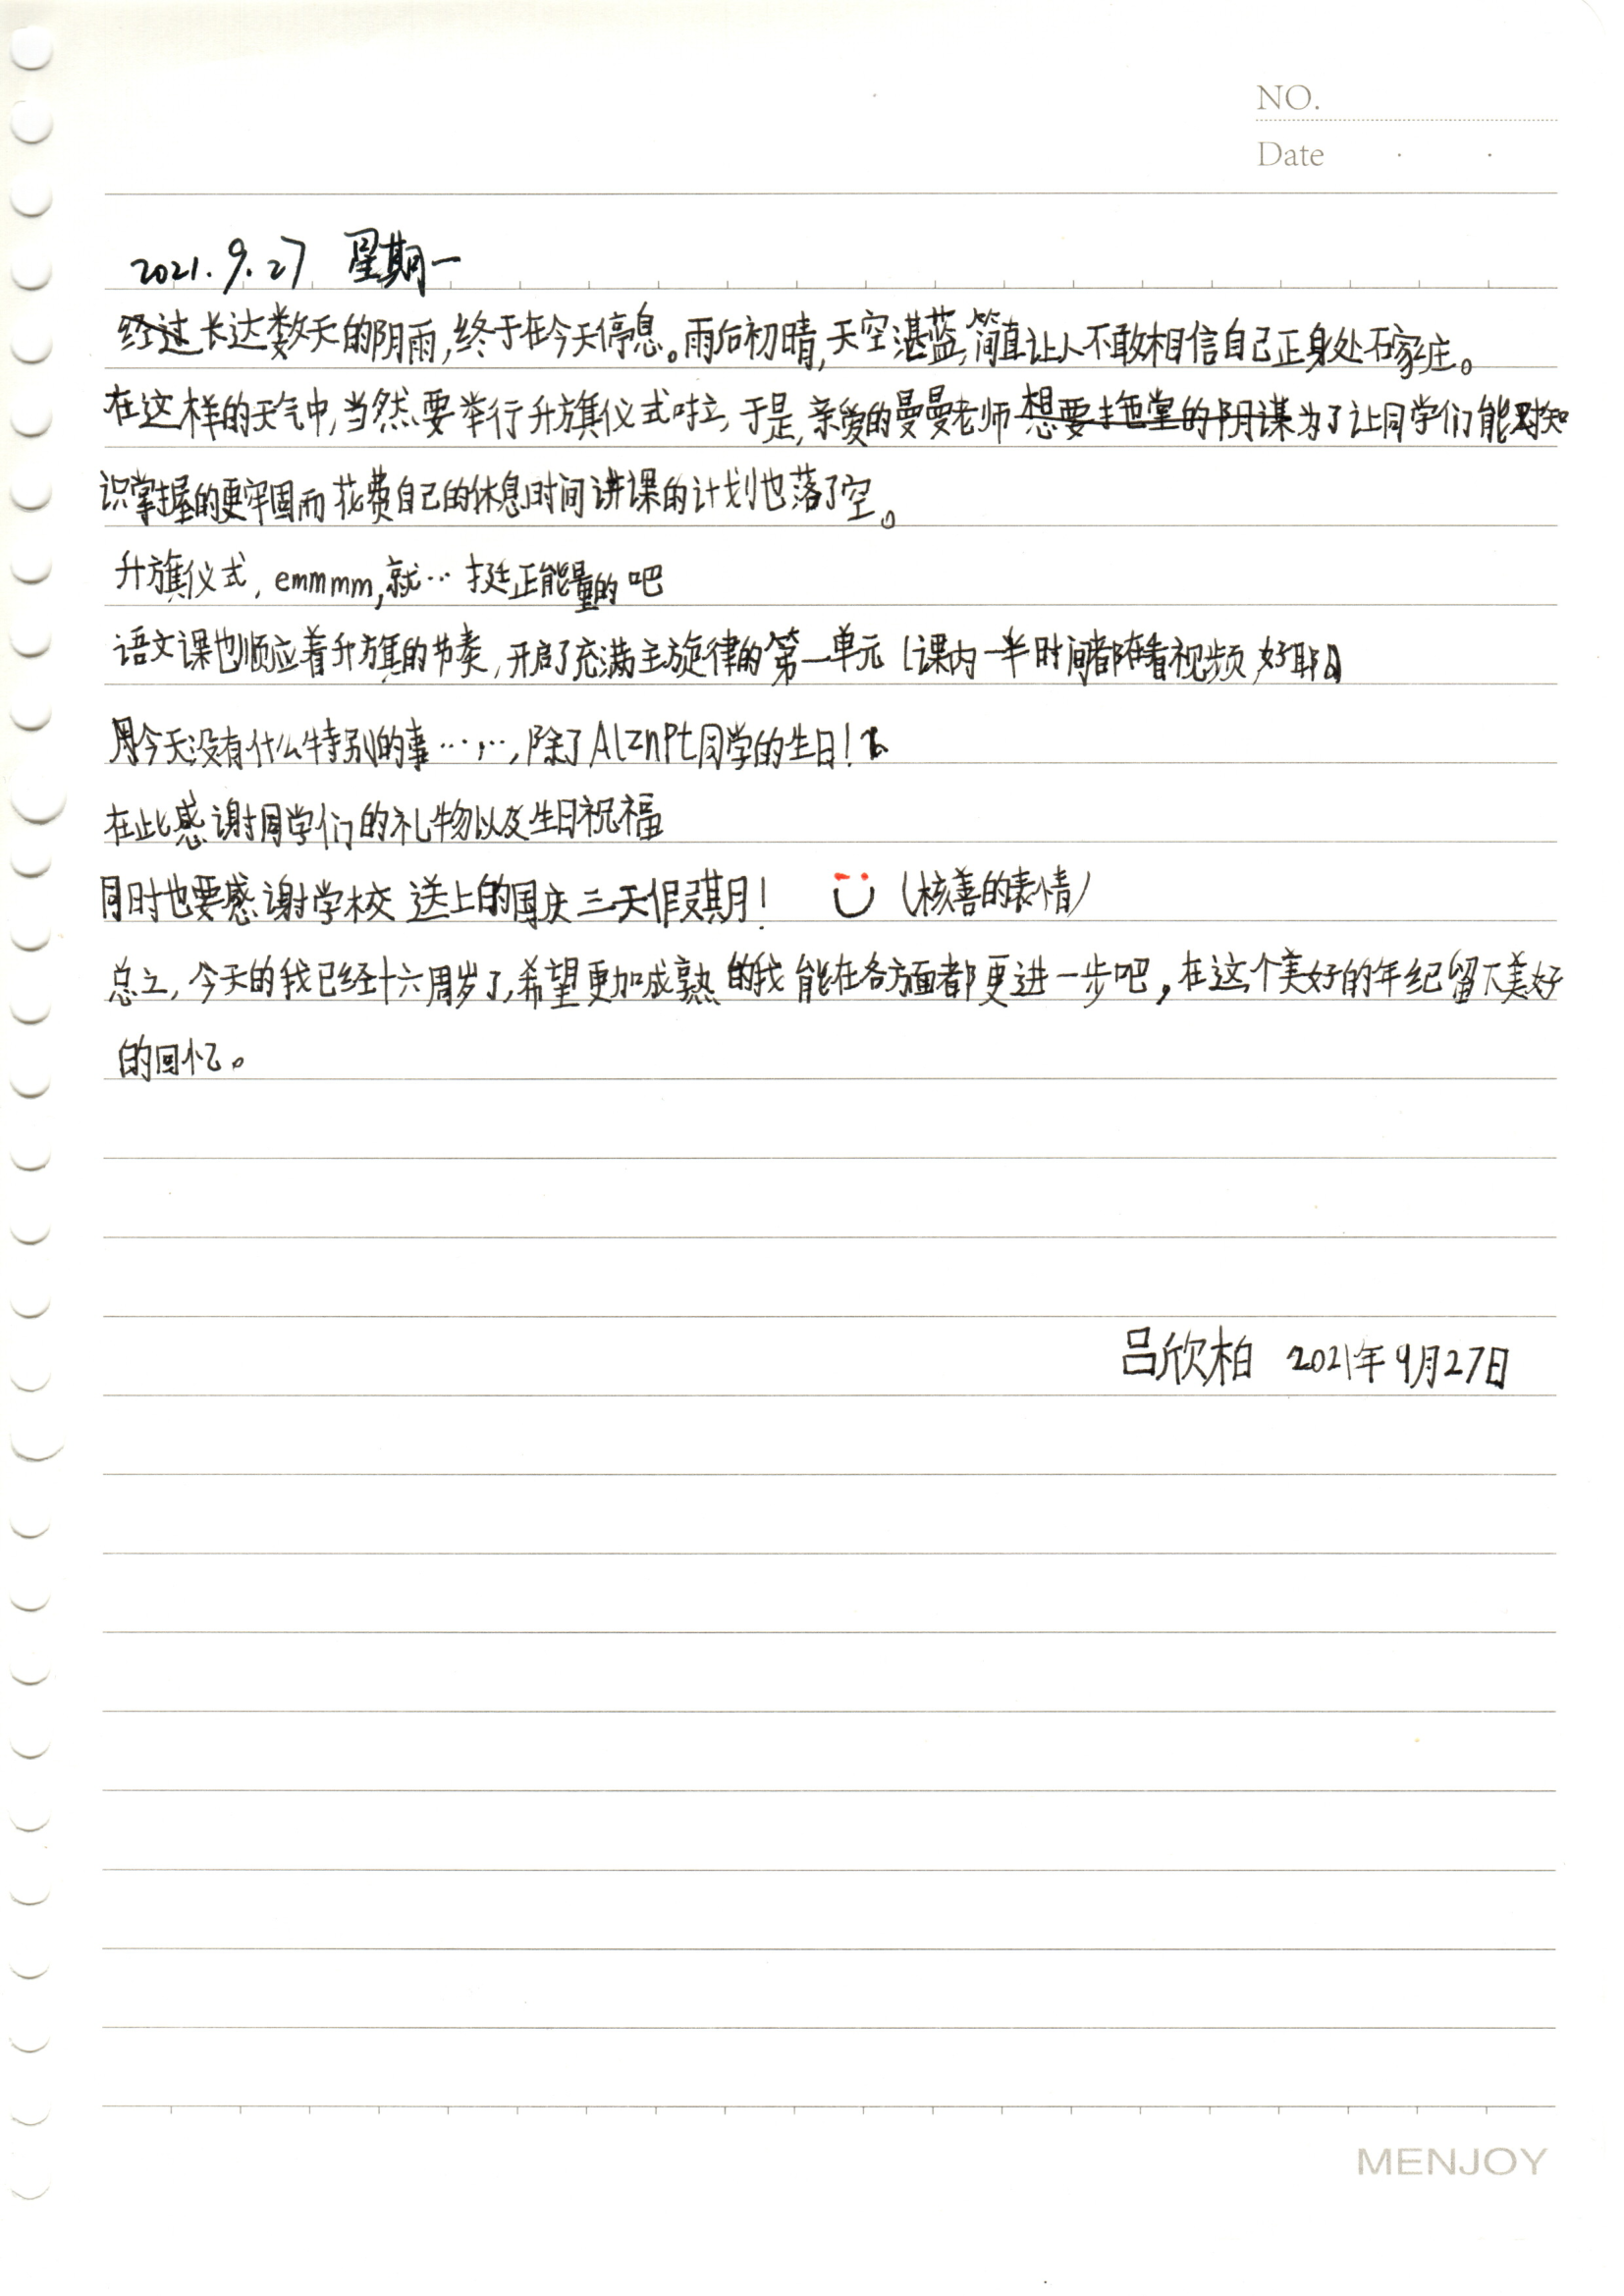 NO.
Date
2021.9.27 星期一
经过长达数天的阴雨,终于在今天停息。雨后初晴,天空湛蓝,简直让人不敢相信自己正身处石家庄。
在这样的天气中,当然要举行升旗仪式啦,于是,亲爱的曼曼老师想要占课堂的阴谋为了让同学们能对知
识掌握的更牢固而花费自己的休息时间讲课的计划也落了空。
升旗仪式,emmmm,就…挺正能量的吧
语文课也顺应着升旗的节奏,开启了充满主旋律的第一单元(课内一半时间都在看视频,好耶)
今天没有什么特别的事……,除了AlznPt同学的生日!
在此感谢同学们的礼物以及生日祝福
同时也要感谢学校送上的国庆三天假期! (核善的表情)
总之,今天的我已经十六周岁了,希望更加成熟的我能在各方面都更进一步吧,在这个美好的年纪留下美好
的回忆。
吕欣柏 2021年9月27日
MENJOY